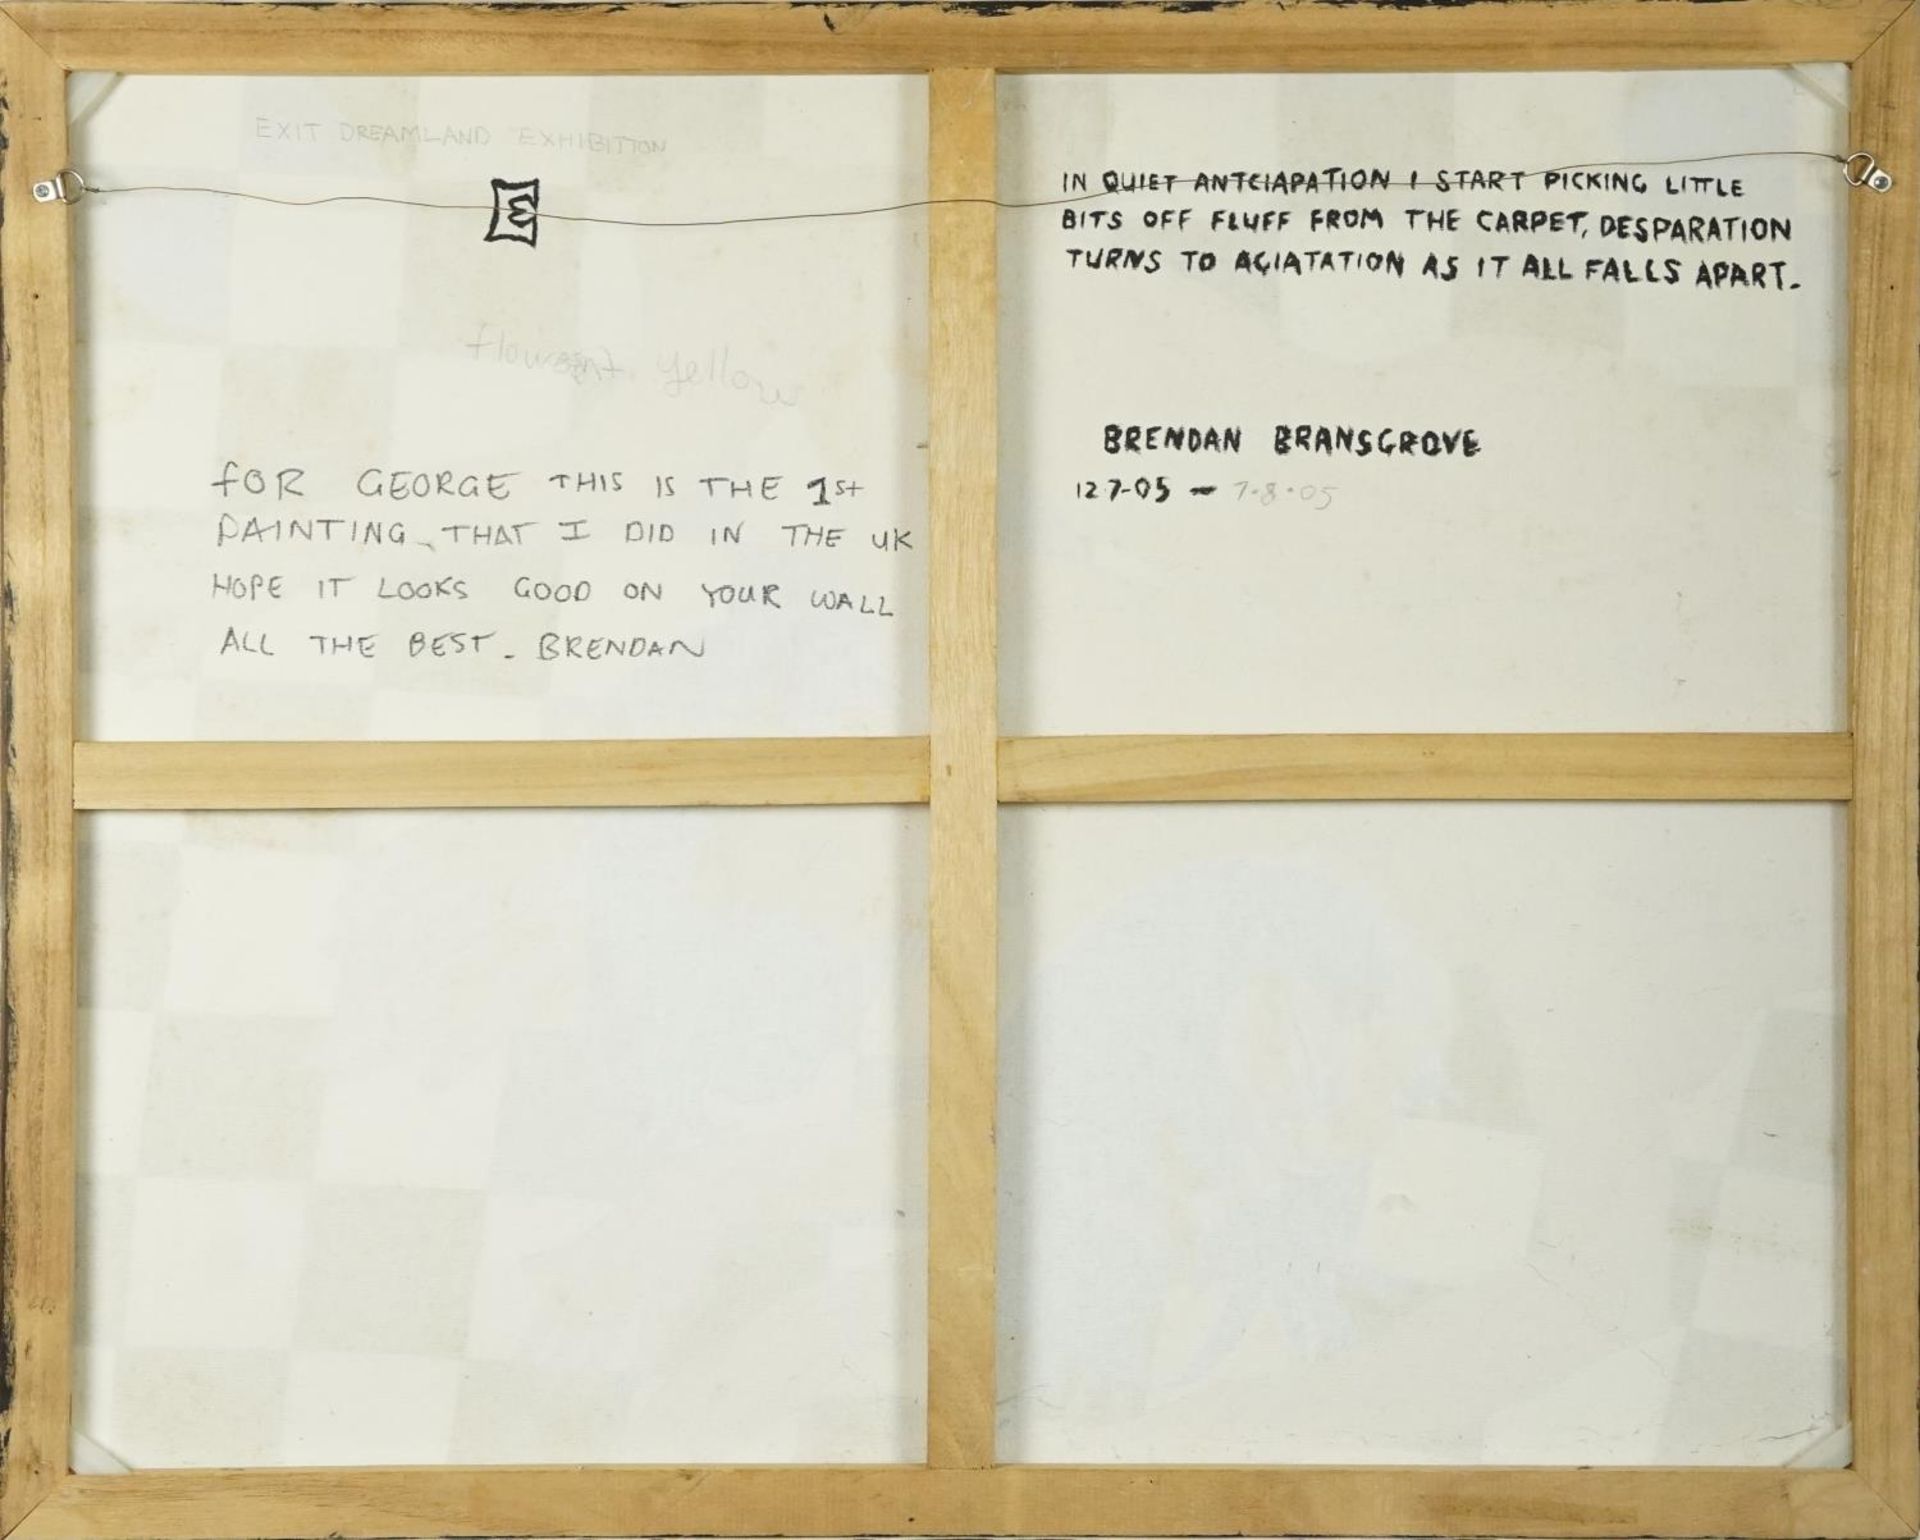 EXIT DREAMLAND EXHIBITION
E
yellow
FOR GEORGE THIS IS THE 1st
PAINTING THAT I DID IN THE UK
HOPE IT LOOKS GOOD ON YOUR WALL
ALL THE BEST - BRENDAN
IN QUIET ANTCIAPATION I START PICKING LITTLE
BITS OFF FLUFF FROM THE CARPET, DESPARATION
TURNS TO AGIATATION AS IT ALL FALLS APART.
BRENDAN BRANSGROVE
12 7-05 - 7·8·05